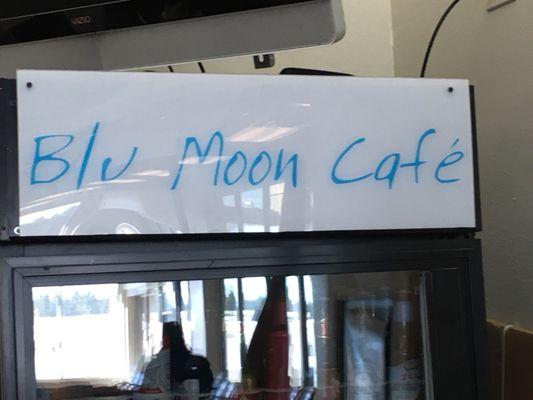 VIZIO
Blu Moon Café